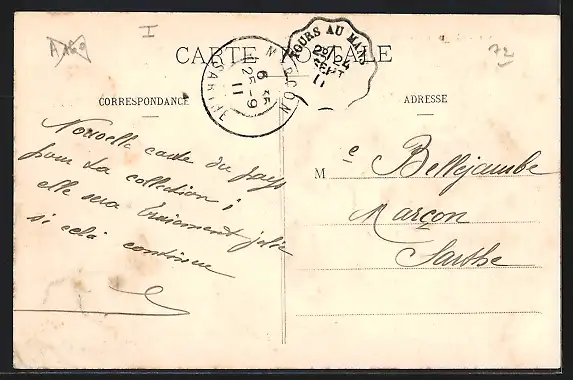 I
72
CARTE POSTALE
TOURS AU MANS
25 24
SEPT
11
MARÇON
SARTHE
6 35
25-9
11
CORRESPONDANCE
ADRESSE
Nouvelle carte du pays
pour la collection ;
elle sera vraiment jolie
si cela continue
Me Bellejambe
Marçon
Sarthe